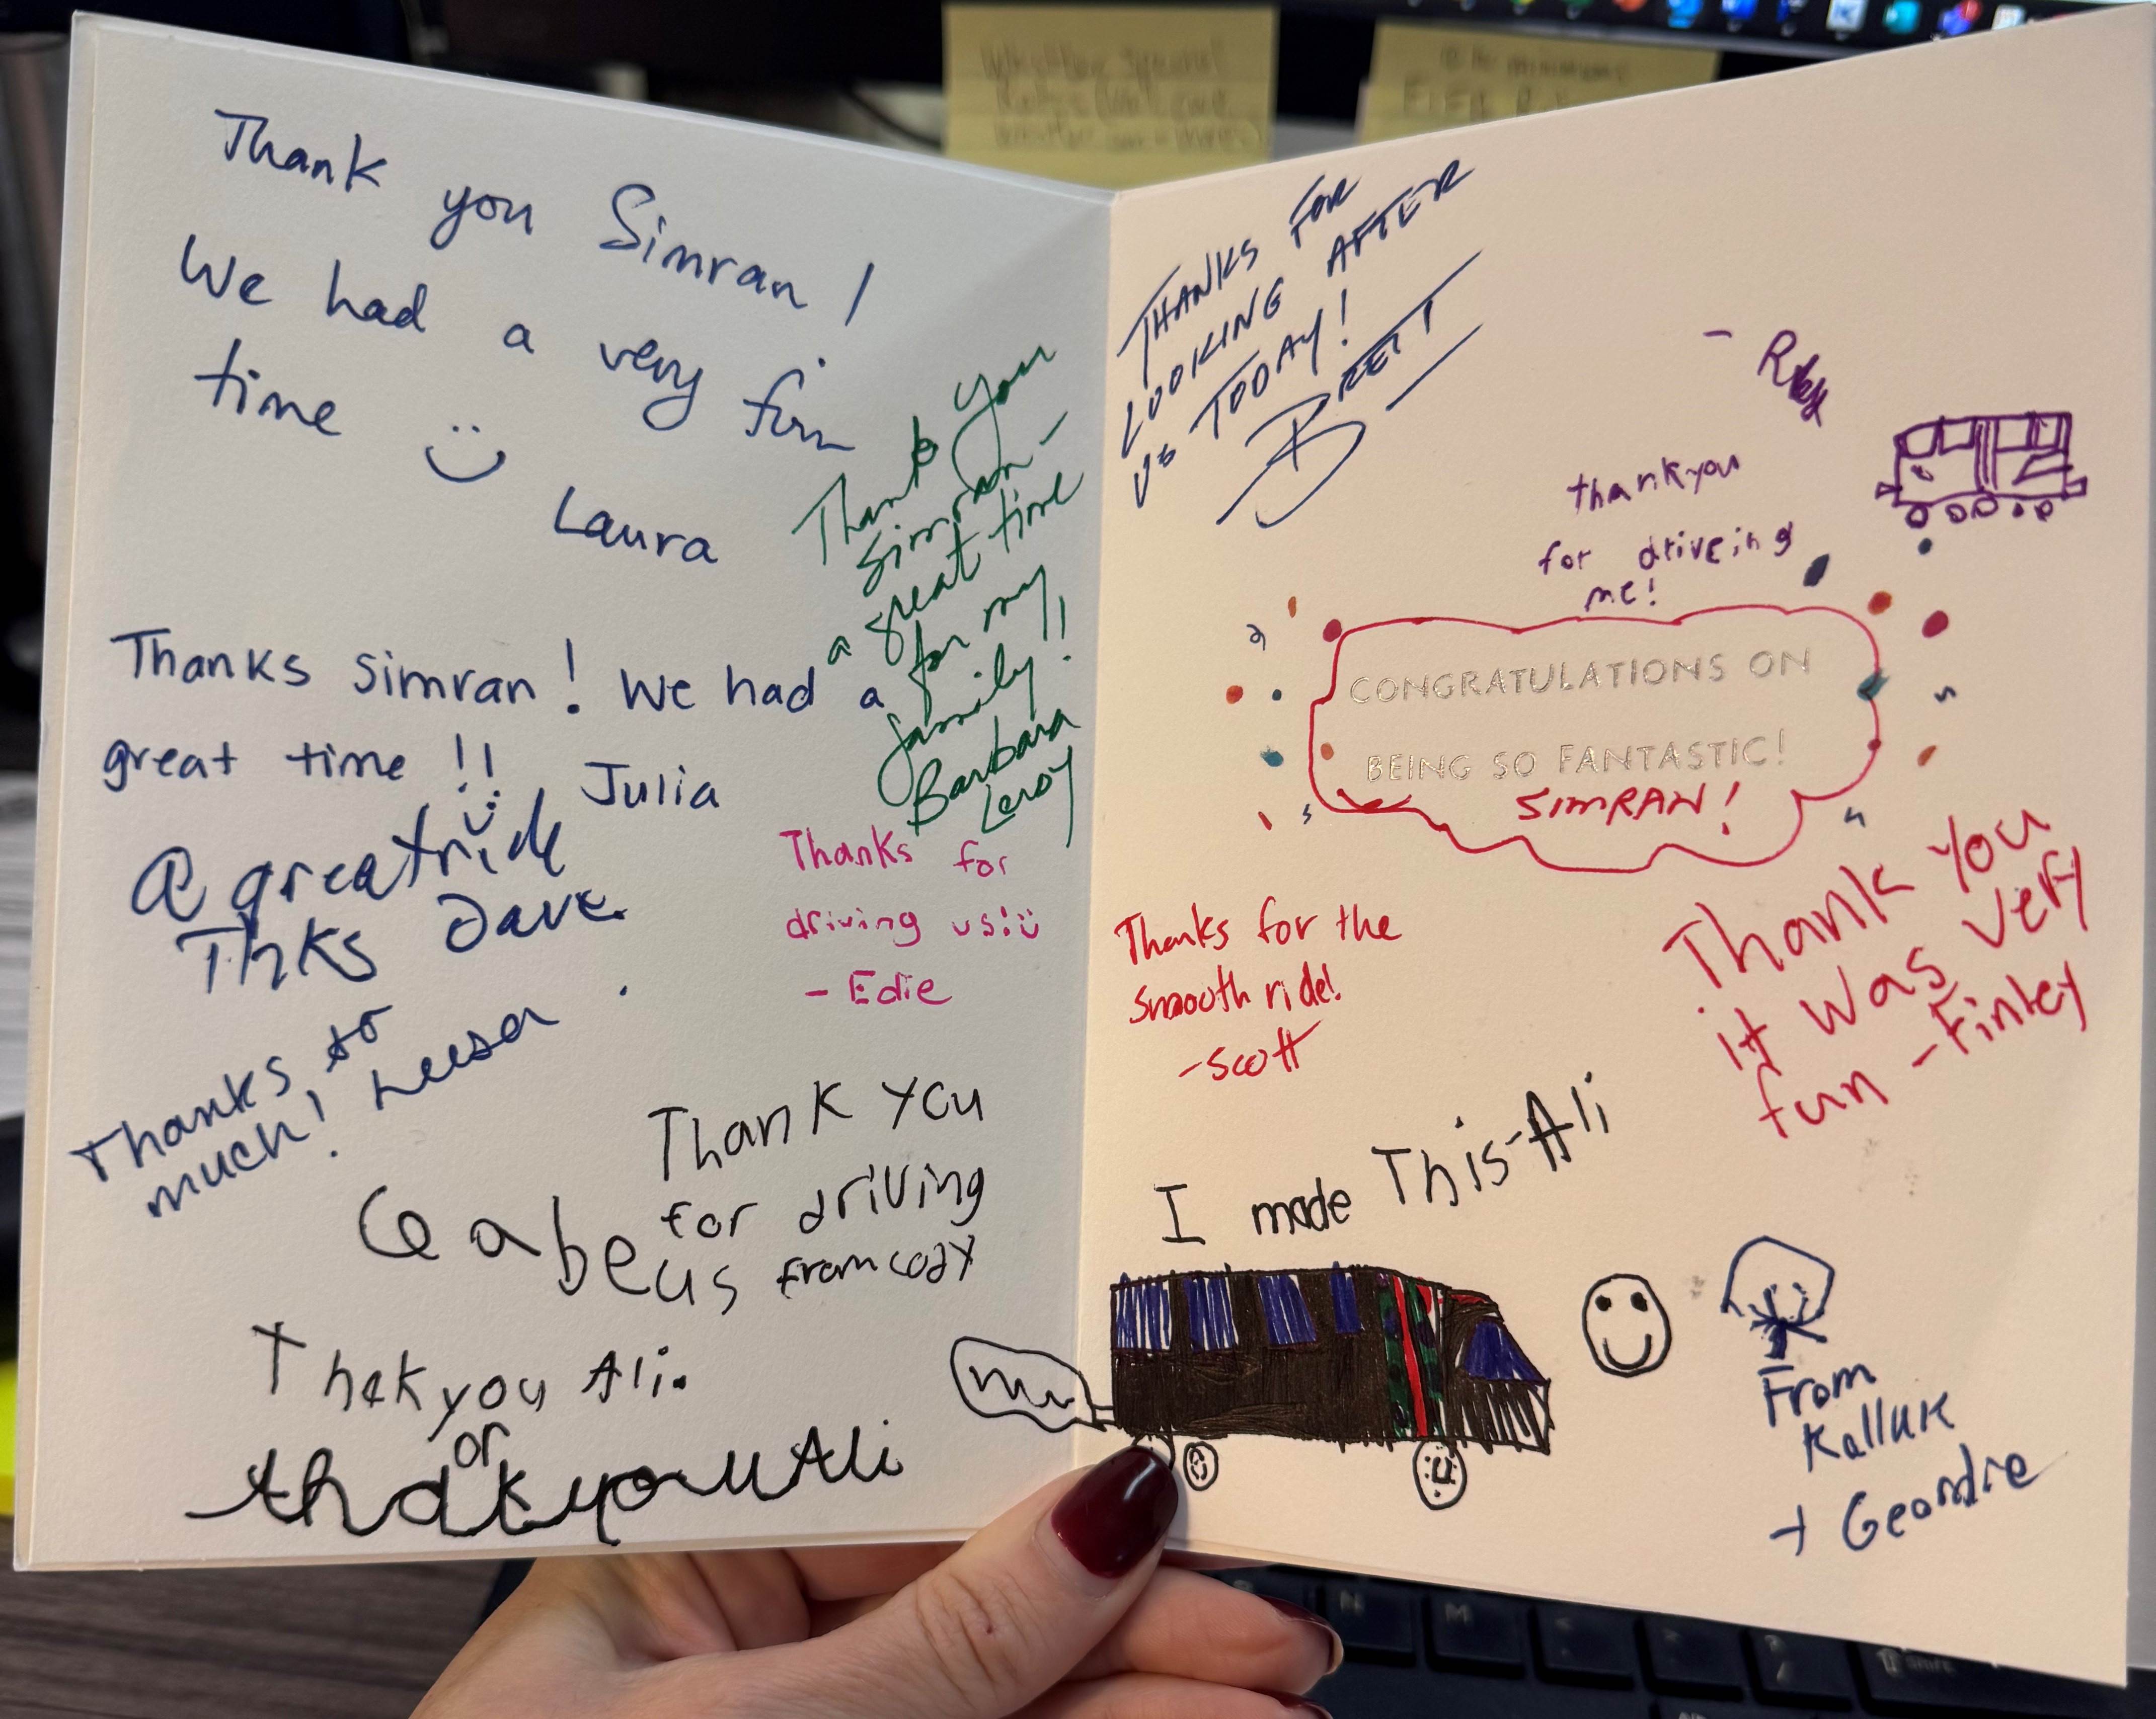 Thank you Simran!
We had a very fun
time
Laura
Thank you
Simran -
a great time
for my
family!
Barbara
Leroy
Thanks simran! We had a
great time!!
Julia
A great ride
Thks Dave.
Thanks for
driving us!
- Edie
Thanks so
much! Leesa.
Thank you
for driving
us from cozy
Gabe
Thakyou Ali.
or
thakyou Ali
THANKS FOR
LOOKING AFTER
US TODAY!
BRETT
thankyou
for driveing
me!
CONGRATULATIONS ON
BEING SO FANTASTIC!
SIMRAN!
Thanks for the
smooth ride!
-Scott
Thank you
it was very
fun -Finley
I made This-Ali
From
Kalluk
+ Geordie
N M
shift